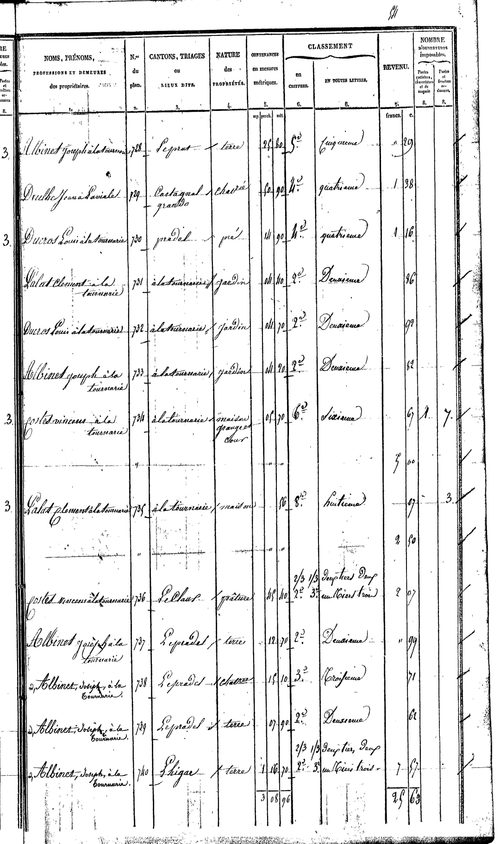 NOMS, PRÉNOMS, PROFESSIONS ET DEMEURES des propriétaires. N.os du plan. CANTONS, TRIAGES ou LIEUX DITS. NATURE des PROPRIÉTÉS. CONTENANCES en mesures métriques. CLASSEMENT en CHIFFRES. EN TOUTES LETTRES. REVENU. NOMBRE D'OUVERTURES imposables.
2. 3. 4. 5. 6. 7. 8. 9.
francs. c.
Albinet Joseph à la tournarie 728 Leprat terre 25 80 5e Cinquieme " 29
729 Castagnal grande 4e quatrieme 1 38
Ducros Louis à la tournarie 730 pradel pré 14 90 4e quatrieme 1 16
Lalat Clement à la tournarie 731 à la tournarie jardin 04 40 2e Deuxieme 86
Ducros Louis à la tournarie 732 à la tournarie jardin 04 70 2e Deuxieme 92
Albinet Joseph à la tournarie 733 à la tournarie jardin 04 20 2e Deuxieme 82
Costes vincens à la tournarie 734 à la tournarie maison grange et cour 05 70 6e Sixieme 67 1. 7.
5 00
Lalat Clement à la tournarie 735 à la tournarie maison 56 8e huitieme 07 3.
2 50
Costes vincens à la tournarie 736 Le Claux pâture 45 40 2/3 1/3 2e 3e deux tiers Deux un tiers trois 2 07
Albinet Joseph à la tournarie 737 Lepradet terre 12 70 2e Deuxieme " 99
Albinet, Joseph, à la tournarie 738 Lepradet 15 10 3e Troisieme 71
Albinet, Joseph, à la tournarie 739 Lepradel terre 07 90 2e Deuxieme 62
Albinet, Joseph, à la tournarie 740 terre 1 16 70 2/3 1/3 2e 3e deux tiers, Deux un tiers trois 7 57
3 08 96 25 63